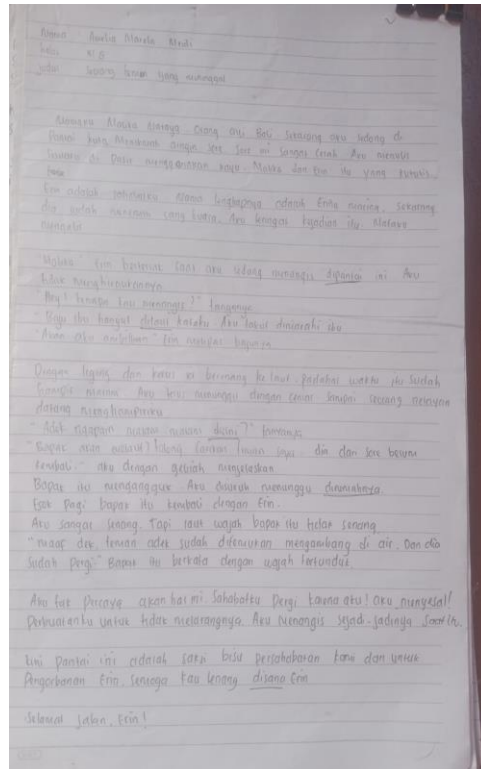 Nama : Amelia Marela
kelas XI
judul Seorang teman yang meninggal
Namaku Molika Orang asli Bali. Sekarang aku sedang di
Pantai angin sore. Sore ini sangat cerah. Aku menulis
di Pasir menggunakan kayu. Molika dan Erin itu yang kutulis.
Erin adalah sahabatku. Nama lengkapnya adalah Erina Sekarang
dia sudah sang kuasa. Aku kejadian itu. Mataku
menangis
"Molika" Erin berteriak Saat aku sedang menangis dipantai ini. Aku
tidak menghiraukannya.
"Hey! kenapa kau menangis?" tanyanya
"Baju ibu hanyut dilaut karena Aku takut dimarahi ibu.
"Akan aku ambilkan" Erin
Dengan dan ia berenang ke laut padahal waktu itu sudah
malam. Aku menunggu dengan sampai seorang nelayan
datang menghampiriku
"Adek ngapain malam malam disini?" tanyanya
"Bapak akan melaut? tolong carikan teman saya. dia dari sore belum
kembali." aku dengan gelisah menjelaskan
Bapak itu mengangguk Aku disuruh menunggu dirumahnya.
Esok Pagi bapak itu kembali dengan Erin.
Aku sangat senang. Tapi raut wajah bapak itu tidak senang
"maaf dek, teman adek sudah ditemukan mengambang di air. Dan dia
sudah pergi" Bapak itu berkata dengan wajah tertunduk.
Aku tak Percaya akan hal ini. Sahabatku Pergi karena aku! aku menyesal!
Perbuatanku untuk tidak melarangnya. Aku menangis sejadi-jadinya Saat itu.
Kini Pantai ini adalah saksi bisu Persahabatan kami dan untuk
Pengorbanan Erin. Semoga kau tenang disana Erin
Selamat jalan, Erin!